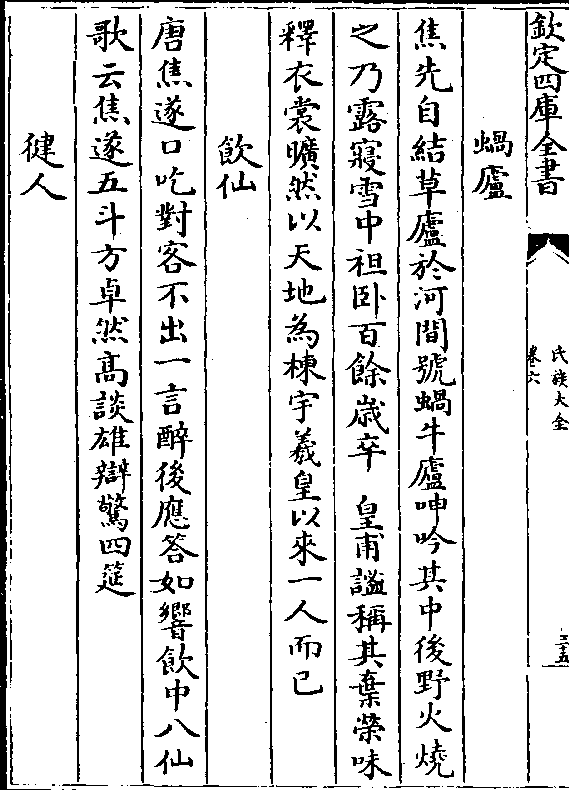 欽定四庫全書
氏族大全
卷六
三五
蝸廬
焦先自結草廬於河間號蝸牛廬呻吟其中後野火燒
之乃露寢雪中袒卧百餘歲卒　皇甫謐稱其棄榮味
釋衣裳曠然以天地為棟宇羲皇以來一人而已
飲仙
唐焦遂口吃對客不出一言醉後應答如響飲中八仙
歌云焦遂五斗方卓然高談雄辯驚四筵
健人